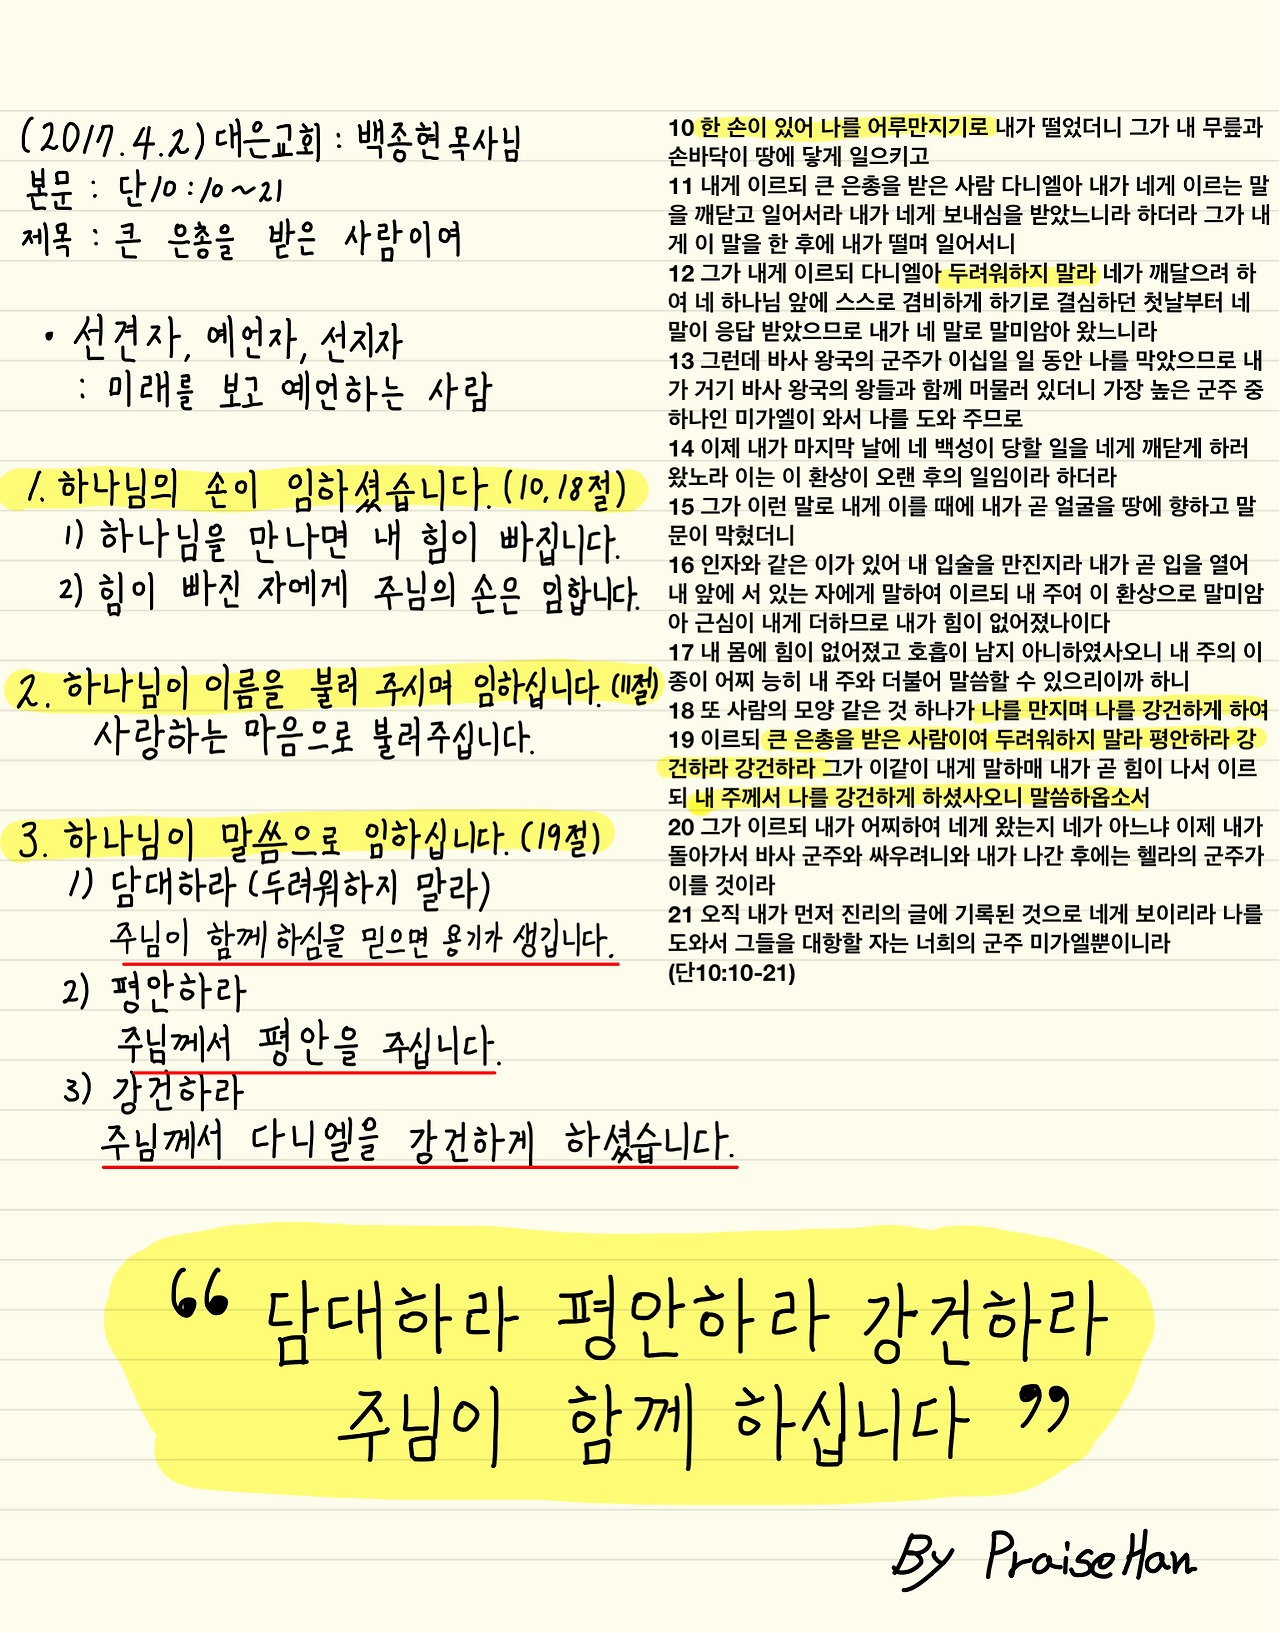 (2017.4.2) 대은교회 : 백종현 목사님
본문 : 단10:10~21
제목 : 큰 은총을 받은 사람이여
• 선견자, 예언자, 선지자
: 미래를 보고 예언하는 사람
1. 하나님의 손이 임하셨습니다. (10, 18절)
1) 하나님을 만나면 내 힘이 빠집니다.
2) 힘이 빠진 자에게 주님의 손은 임합니다.
2. 하나님이 이름을 불러 주시며 임하십니다. (11절)
사랑하는 마음으로 불러주십니다.
3. 하나님이 말씀으로 임하십니다. (19절)
1) 담대하라 (두려워하지 말라)
주님이 함께 하심을 믿으면 용기가 생깁니다.
2) 평안하라
주님께서 평안을 주십니다.
3) 강건하라
주님께서 다니엘을 강건하게 하셨습니다.
10 한 손이 있어 나를 어루만지기로 내가 떨었더니 그가 내 무릎과
손바닥이 땅에 닿게 일으키고
11 내게 이르되 큰 은총을 받은 사람 다니엘아 내가 네게 이르는 말
을 깨닫고 일어서라 내가 네게 보내심을 받았느니라 하더라 그가 내
게 이 말을 한 후에 내가 떨며 일어서니
12 그가 내게 이르되 다니엘아 두려워하지 말라 네가 깨달으려 하
여 네 하나님 앞에 스스로 겸비하게 하기로 결심하던 첫날부터 네
말이 응답 받았으므로 내가 네 말로 말미암아 왔느니라
13 그런데 바사 왕국의 군주가 이십일 일 동안 나를 막았으므로 내
가 거기 바사 왕국의 왕들과 함께 머물러 있더니 가장 높은 군주 중
하나인 미가엘이 와서 나를 도와 주므로
14 이제 내가 마지막 날에 네 백성이 당할 일을 네게 깨닫게 하러
왔노라 이는 이 환상이 오랜 후의 일임이라 하더라
15 그가 이런 말로 내게 이를 때에 내가 곧 얼굴을 땅에 향하고 말
문이 막혔더니
16 인자와 같은 이가 있어 내 입술을 만진지라 내가 곧 입을 열어
내 앞에 서 있는 자에게 말하여 이르되 내 주여 이 환상으로 말미암
아 근심이 내게 더하므로 내가 힘이 없어졌나이다
17 내 몸에 힘이 없어졌고 호흡이 남지 아니하였사오니 내 주의 이
종이 어찌 능히 내 주와 더불어 말씀할 수 있으리이까 하니
18 또 사람의 모양 같은 것 하나가 나를 만지며 나를 강건하게 하여
19 이르되 큰 은총을 받은 사람이여 두려워하지 말라 평안하라 강
건하라 강건하라 그가 이같이 내게 말하매 내가 곧 힘이 나서 이르
되 내 주께서 나를 강건하게 하셨사오니 말씀하옵소서
20 그가 이르되 내가 어찌하여 네게 왔는지 네가 아느냐 이제 내가
돌아가서 바사 군주와 싸우려니와 내가 나간 후에는 헬라의 군주가
이를 것이라
21 오직 내가 먼저 진리의 글에 기록된 것으로 네게 보이리라 나를
도와서 그들을 대항할 자는 너희의 군주 미가엘뿐이니라
(단10:10-21)
“ 담대하라 평안하라 강건하라
주님이 함께 하십니다 ”
By PraiseHan